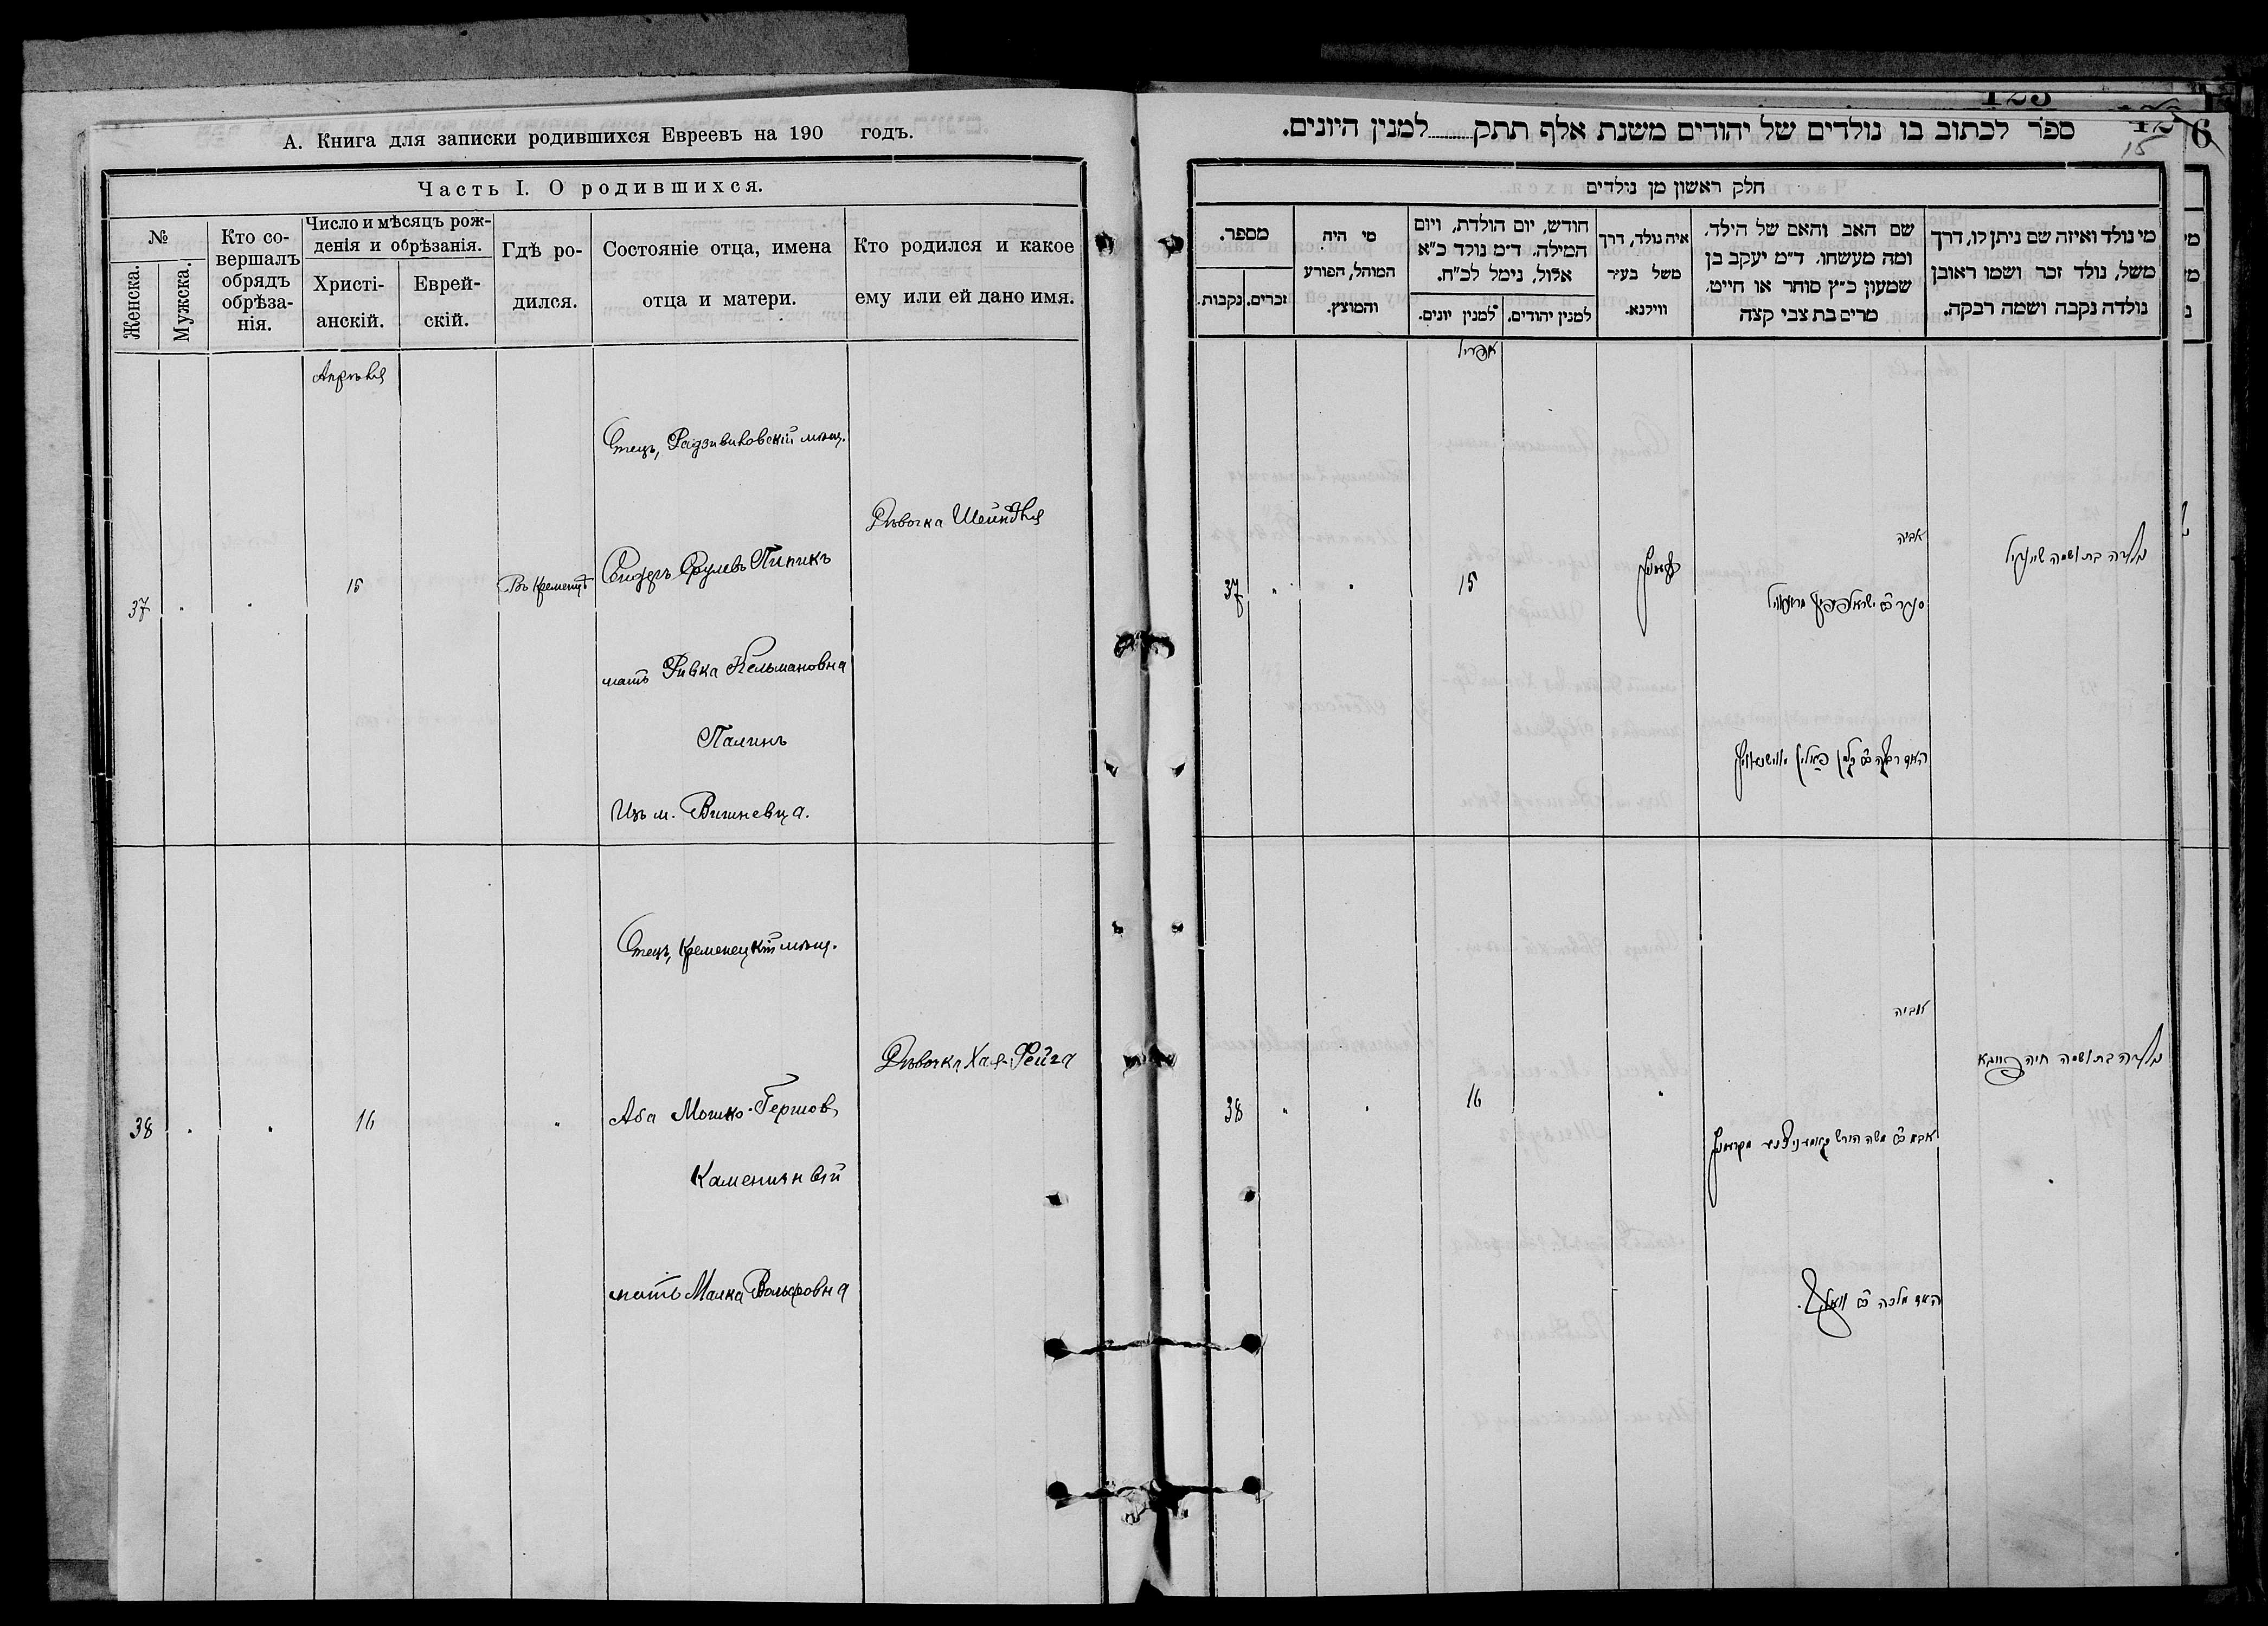 А. Книга для записки родившихся Евреевъ на 190 годъ.
Часть I. О родившихся.
№
Женска.
Мужска.
Кто со-
вершалъ
обрядъ
обрѣза-
нія.
Число и мѣсяцъ рож-
денія и обрѣзанія.
Христі-
анскій.
Еврей-
скій.
Гдѣ ро-
дился.
Состояніе отца, имена
отца и матери.
Кто родился и какое
ему или ей дано имя.
Апрѣля
37
15
Въ Кременцѣ
Отецъ, Радзивиловскій мѣщ.
Срулевъ Пипикъ
мать Ривка Кельмановна
Палинъ
Изъ м. Вишневца.
Дѣвочка Шейндля
38
16
"
Отецъ, Кременецкій мѣщ.
Аба Мошко-Гершов.
Каменяный
мать Малка Вольфовна
Дѣвочка Хая-Фейга
123
6
15
ספר לכתוב בו נולדים של יהודים משנת אלף תתק למנין היונים.
חלק ראשון מן נולדים
מי נולד ואיזה שם ניתן לו, דרך
משל, נולד זכר ושמו ראובן
נולדה נקבה ושמה רבקה.
שם האב והאם של הילד,
ומה מעשהו. ד״מ יעקב בן
שמעון כ״ץ סוחר או חייט,
מרים בת צבי קצה
איה נולד, דרך
משל בעיר
ווילנא.
חודש, יום הולדת, ויום
המילה. ד״מ נולד כ״א
אלול, נימל לכ״ח.
למנין יהודים.
למנין יונים.
מי היה
המוהל, הפורע
והמוצץ.
מספר.
זכרים.
נקבות.
אפריל
נולדה בת ושמה שיינדיל
אביה
15
37
נולדה בת ושמה חיה פייגא
אביה
אבא ב״ר משה הירש
האם מלכה ב״ר וואלף.
"
16
38